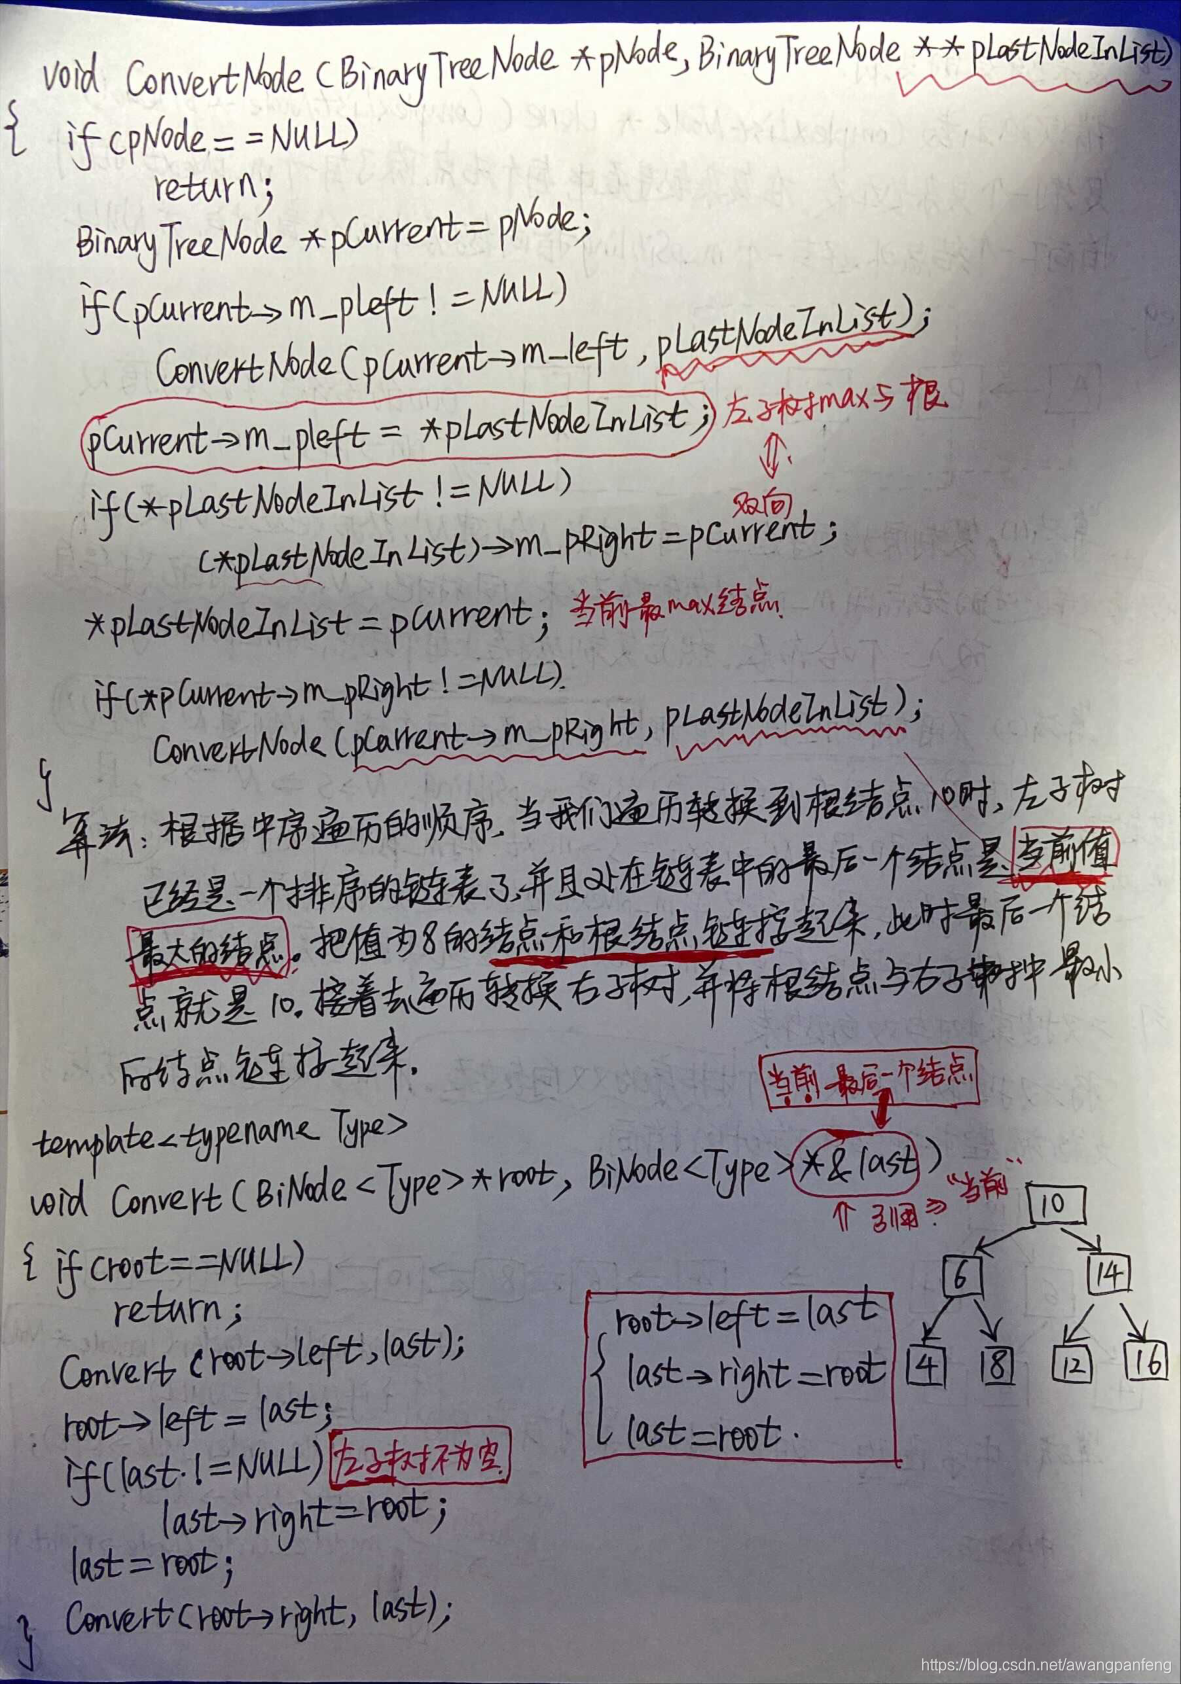 void ConvertNode (BinaryTreeNode *pNode, BinaryTreeNode ** pLastNodeInList)
{ if (pNode == NULL)
return;
BinaryTreeNode *pCurrent = pNode;
if (pCurrent→m_pleft != NULL)
ConvertNode (pCurrent→m_left, pLastNodeInList);
pCurrent→m_pleft = *pLastNodeInList; 左子树max与根
双向
if (*pLastNodeInList != NULL)
(*pLastNodeInList)→m_pRight = pCurrent;
*pLastNodeInList = pCurrent; 当前最max结点
if (*pCurrent→m_pRight != NULL).
ConvertNode (pCurrent→m_pRight, pLastNodeInList);
}
算法: 根据中序遍历的顺序, 当我们遍历转换到根结点10时, 左子树
已经是一个排序的链表了, 并且处在链表中的最后一个结点是当前值
最大的结点。把值为8的结点和根结点链接起来, 此时最后一个结
点就是10。接着去遍历转换右子树, 并将根结点与右子树中最小
的结点链接起来.
当前最后一个结点
template<typename Type>
void Convert (BiNode<Type> *root, BiNode<Type> *&last)
引用⇒"当前"
{ if (root == NULL)
return;
Convert (root→left, last);
root→left = last;
if (last != NULL) 左子树不为空
last→right = root;
last = root;
Convert (root→right, last);
}
root→left = last
last→right = root
last = root.
10
6 14
4 8 12 16
https://blog.csdn.net/awangpanfeng